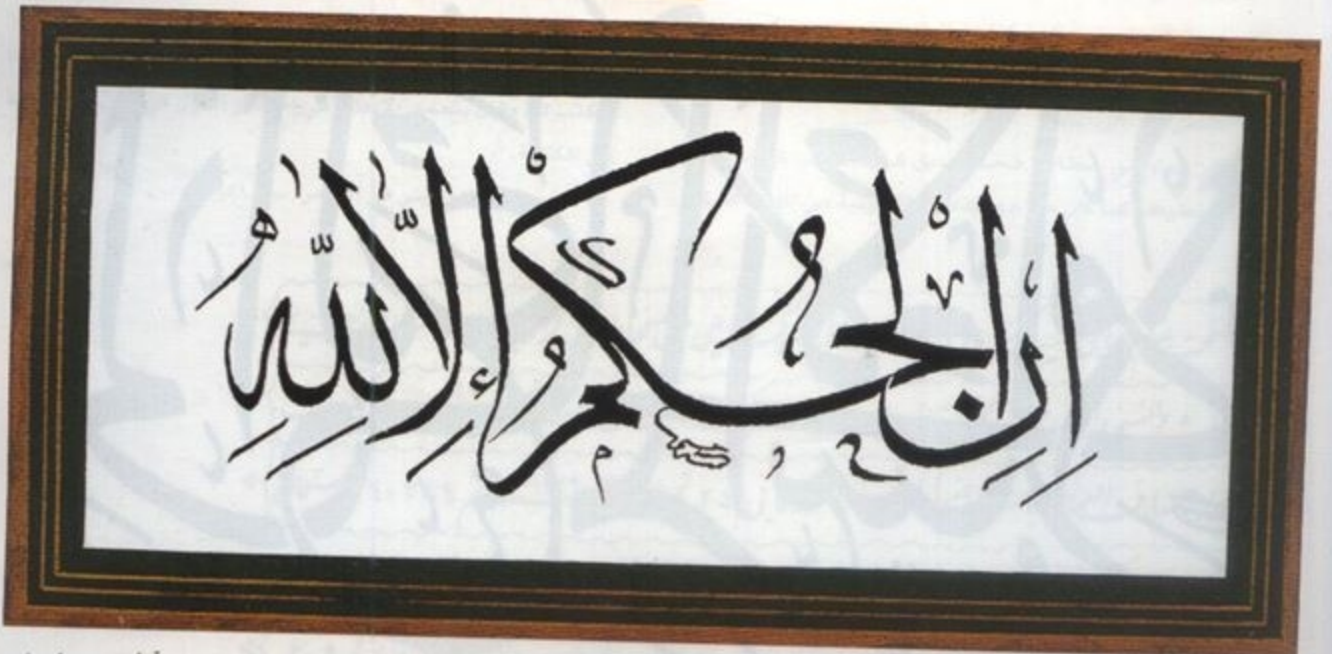 اِنِ الْحُكْمُ إِلَّا لِلّٰهِ